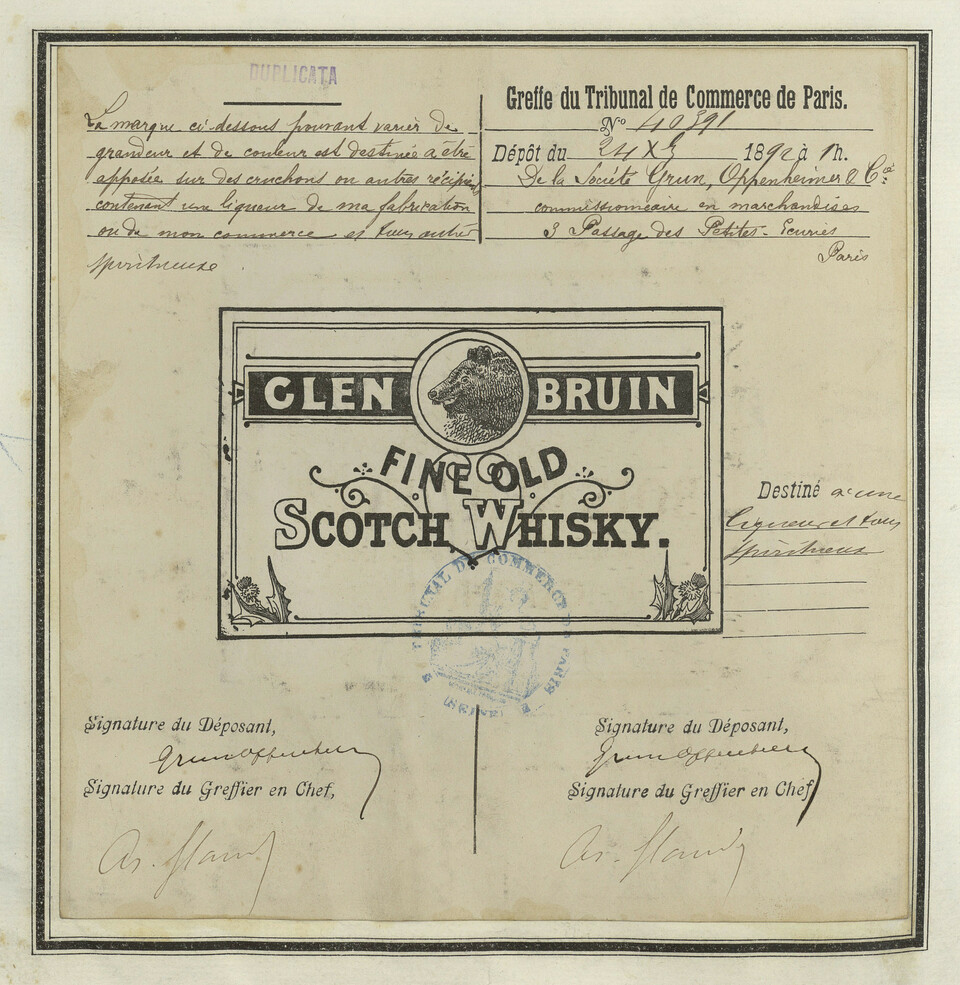 DUPLICATA
La marque ci-dessous pouvant varier de
grandeur et de couleur est destinée à être
apposée sur des cruchons ou autres récipients
contenant une liqueur de ma fabrication
ou de mon commerce et tous autres
spiritueux
Greffe du Tribunal de Commerce de Paris.
No 40391
Dépôt du 24 X 1892 à 1h.
De la Société Grun, Oppenheimer & Cie
commissionnaire en marchandises
3 Passage des Petites-Ecuries
Paris
GLEN BRUIN
FINE OLD
SCOTCH WHISKY.
Destiné à une
liqueur et tous
spiritueux
TRIBUNAL DE COMMERCE DE PARIS
(SEINE)
Signature du Déposant,
Signature du Greffier en Chef,
Signature du Déposant,
Signature du Greffier en Chef